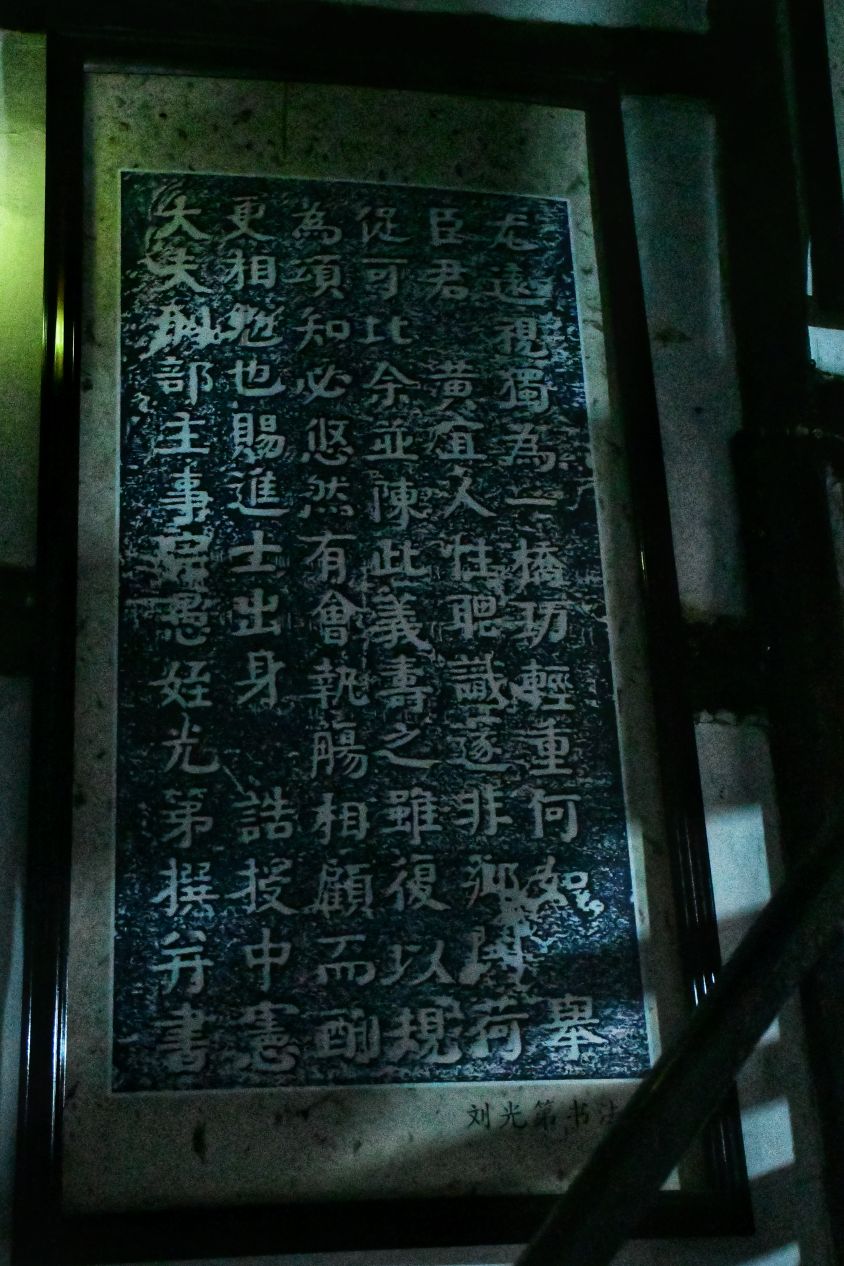 遠視獨為一 功輕重何如 舉
臣君 黃 人往聘 遂非 荷
從可比余並陳此義壽之雖復以規
為項知必悠然有會執觴相顧而
更相勉也賜進士出身 誥授中憲
大夫刑部主事 愚姪光第撰并書
刘光第书法